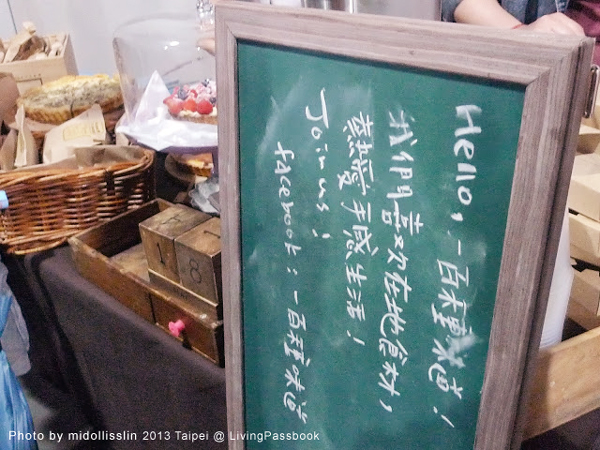 Hello,一百種味道!
我們喜歡在地食材,
熱愛手感生活!
Join us!
facebook:一百種味道
1
8
Photo by midollisslin 2013 Taipei @ LivingPassbook